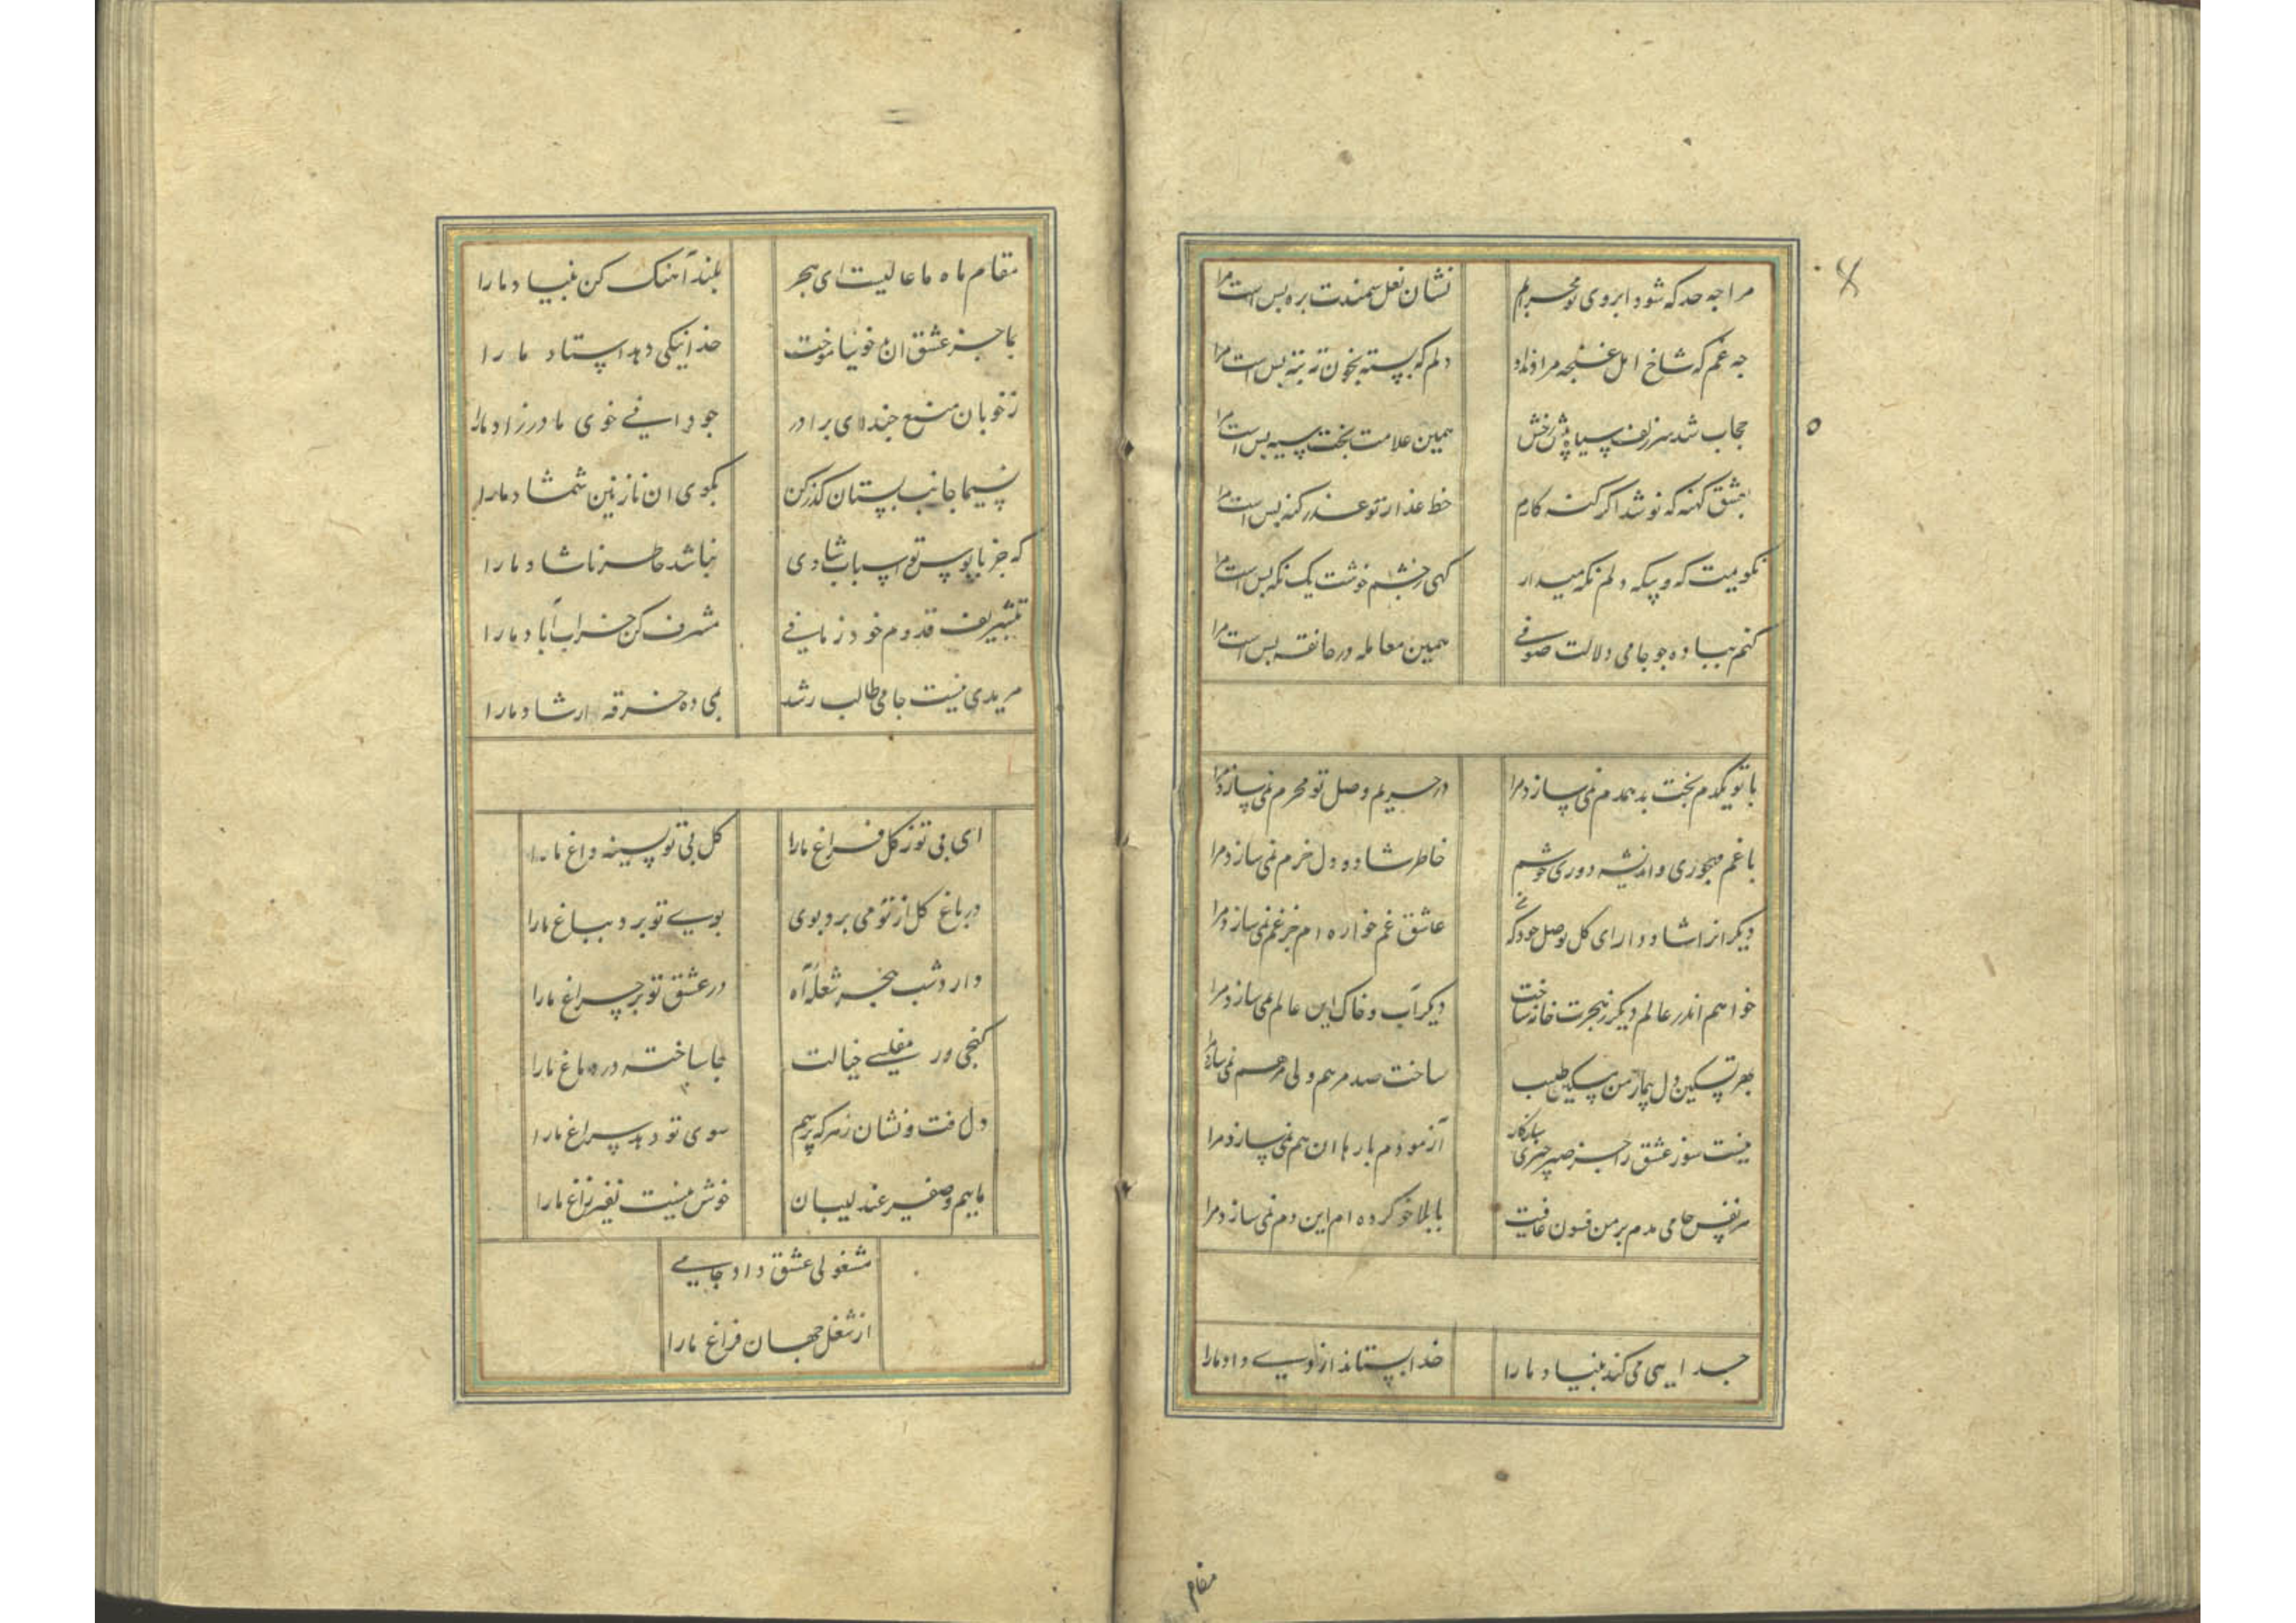 مرا چه حد که شود ابروی تو محرابم
نشان نعل سمندت بره بس است مرا
چه غم که شاخ امل غنچه مراد نداد
دلم که بسته بخون ته بته بس است مرا
حجاب شد سر زلف سیاه پیش رخش
همین علامت بخت سیه بس است مرا
بعشق کهنه که نو شد اگر کنه کارم
خط عذار تو عذر کنه بس است مرا
نکویمت که و بیکه دلم نکه میدار
کهی ز چشم خوشت یک نکه بس است مرا
کنم بباده چو جامی دلالت صوفی
همین معامله در خانقه بس است مرا
با تو یکدم بخت بد همدم نمی سازد مرا
در حریم وصل تو محرم نمی سازد مرا
با غم مهجوری و اندیشه دوری خوشم
خاطر شاد و دل خرم نمی سازد مرا
دیکر انرا شاد دار ای کل بوصل خود که من
عاشق غم خواره ام جز غم نمی سازد مرا
خواهم اندر عالم دیکر ز هجرت خانه ساخت
دیکر آب و خاک این عالم نمی سازد مرا
بهر تسکین دل بیمار من مسکین طبیب
ساخت صد مرهم ولی مرهم نمی سازد مرا
نیست سوز عشق را جز صبر چیزی سازکار
آزمودم بارها ان هم نمی سازد مرا
هر نفس جامی مدم بر من فسون عافیت
با بلا خو کرده ام این دم نمی سازد مرا
جدایی می کند بنیاد ما را
خدا بستاند از وی داد ما را
مقام
مقام ماه ما عالیست ای هجر
بلند آهنک کن بنیاد ما را
بما جز عشق ان مه خو نیاموخت
خدا نیکی دهد استاد ما را
ز خوبان منع چند ای برادر
چو دانی خوی مادرزاد ما را
نسیما جانب بستان کذر کن
بکوی ان نازنین شمشاد ما را
که جز پابوس تو اسباب شادی
نباشد خاطر ناشاد ما را
بتشریف قدوم خود زمانی
مشرف کن خراب آباد ما را
مریدی نیست جامی طالب رشد
بمی ده خرقه ارشاد ما را
ای بی تو ز کل فراغ ما را
کل بی تو بسینه داغ ما را
در باغ کل از تو می برد بوی
بوی تو برد بباغ ما را
دارد شب هجر شعله آه
در عشق تو بر چراغ ما را
کنجی ور مفلسی خیالت
جا ساخته در دماغ ما را
دل رفت و نشان ز هر که پرسم
سوی تو دهد سراغ ما را
ماییم و صفیر عندلیبان
خوش نیست نفیر زاغ ما را
مشغولی عشق داد جامی
از شغل جهان فراغ ما را